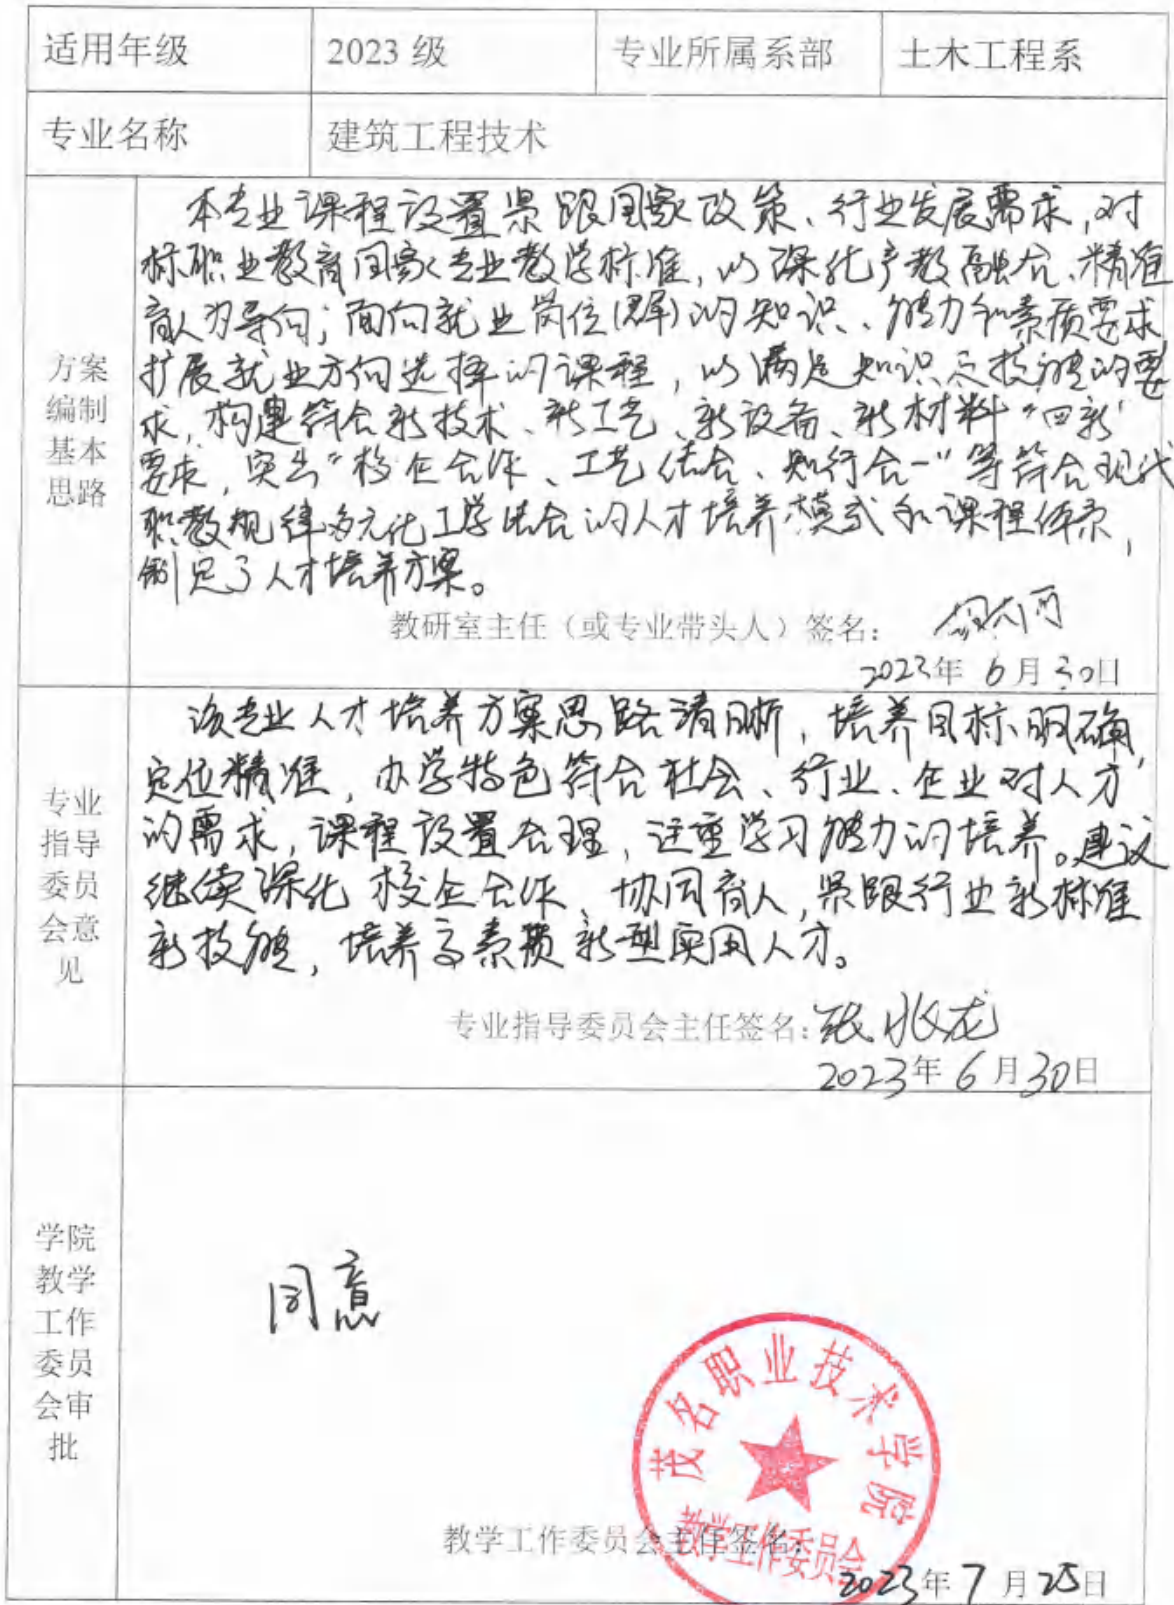 适用年级 2023 级 专业所属系部 土木工程系
专业名称 建筑工程技术
方案
编制
基本
思路
本专业课程设置紧跟国家政策、行业发展需求,对
标职业教育国家专业教学标准,以深化产教融合、精准
育人为导向;面向就业岗位(群)的知识、能力和素质要求
扩展就业方向选择的课程,以满足知识及技能的要
求,构建符合新技术、新工艺、新设备、新材料“四新”
要求,突出“校企合作、工艺结合、知行合一”等符合现代
职教规律多元化工学结合的人才培养模式和课程体系,
制定了人才培养方案。
教研室主任(或专业带头人)签名:
2023年 6月30日
专业
指导
委员
会意
见
该专业人才培养方案思路清晰,培养目标明确,
定位精准,办学特色符合社会、行业、企业对人才
的需求,课程设置合理,注重学习能力的培养。建议
继续深化校企合作、协同育人,紧跟行业新标准
新技能,培养高素质新型实用人才。
专业指导委员会主任签名:张兆龙
2023年 6月30日
学院
教学
工作
委员
会审
批
同意
茂名职业技术学院
教学工作委员会
教学工作委员会主任签名:
2023年 7月25日